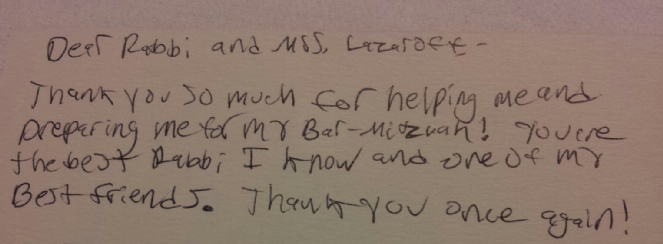 Dear Rabbi and Mss. Lazaroff -
Thank you so much for helping me and
preparing me for my Bar-Mitzvah! You're
the best Rabbi I know and one of my
Best friends. Thank you once again!